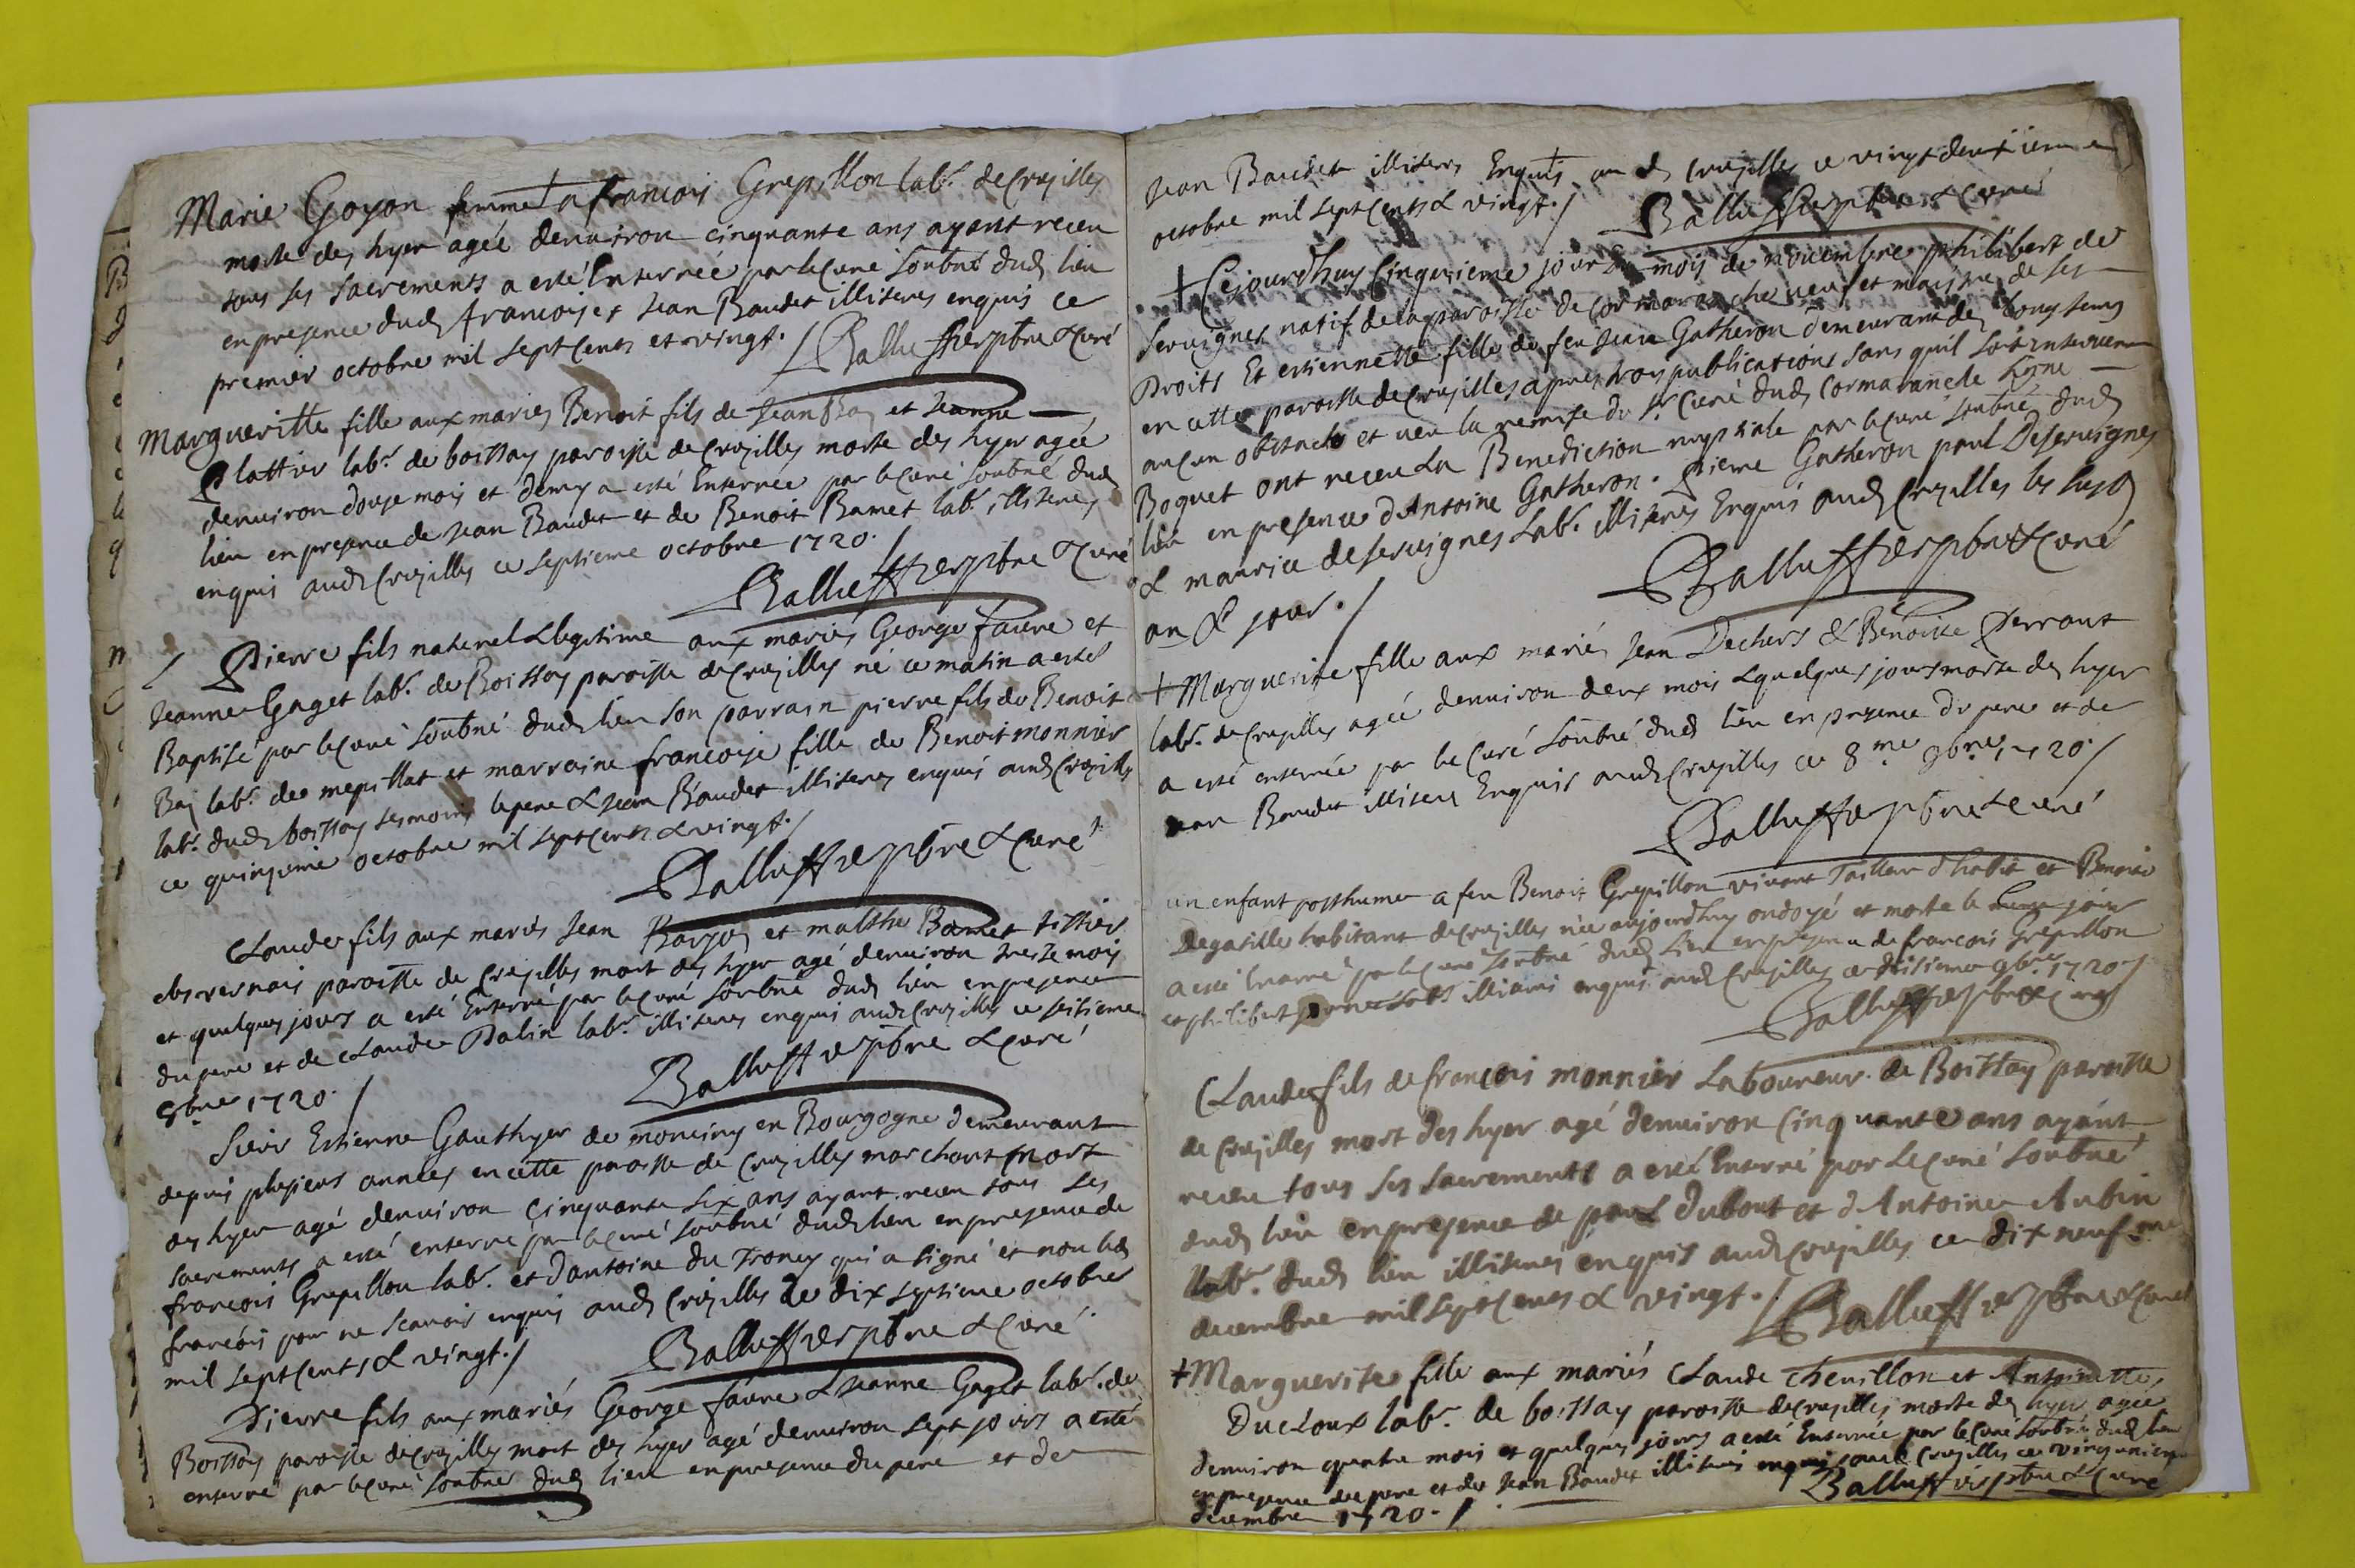 Marie Goyon femme a francois Grepillon labr. de Cruzilles
morte des hyer agée denuiron cinquante ans ayant receu
tous ses sacrements a esté Enterrée par le Curé soubné dud lieu
en presence dud francois et Jean Baudet illiteres enquis ce
premier octobre mil sept Cents et vingt. / Balluffier pbre & Curé
Margueritte fille aux mariez Benoit fils de Jean Baj et Jeanne
Plattier labr. de boissay paroisse de Cruzilles morte des hyer agée
denuiron douze mois et demy a esté Enterrée par le Curé soubné dud
lieu en presence de Jean Baudet et de Benoit Bamet labr. illiteres
enquis aud Cruzilles ce septieme octobre 1720. /
Balluffier pbre & Curé
Pierre fils naturel & legitime aux mariés George faure et
Jeanne Gaget labr. de Boissay paroisse de Cruzilles né ce matin a esté
Baptisé par le Curé soubné dud lieu son parrain pierre fils de Benoit
Baj labr. de mepillat et marraine francoise fille de Benoit monnier
labr. dud boissay tesmoins le pere & Jean Baudet illiteres enquis aud Cruzilles
ce quinzieme octobre mil sept Cents & vingt. /
Balluffier pbre & Curé
Claude fils aux mariés Jean et malthe Bamet tissier
paroisse de Cruzilles mort des hyer agé denuiron treize mois
et quelques jours a esté Enterré par le Curé soubné dud lieu en presence
du pere et de Claude Palin labr. illiteres enquis aud Cruzilles ce seisieme
8bre 1720. /
Balluffier pbre & Curé
Sieur Estienne Gauthyer de en Bourgogne demeurant
depuis plusieurs années en cette paroisse de Cruzilles marchant mort
des hyer agé denuiron Cinquante six ans ayant receu tous ses
sacrements a esté enterré par le Curé soubné dud lieu en presence de
francois Grepillon labr. et dantoine du Troncy qui a signé et non led
francois pour ne scavoir enquis aud Cruzilles ce dix septieme octobre
mil sept Cents & vingt. /
Balluffier pbre & Curé
Pierre fils aux mariés George faure & Jeanne Gaget labr. de
Boissay paroisse de Cruzilles mort des hyer agé denuiron sept jours a esté
enterré par le Curé soubné dud lieu en presence du pere et de
Jean Baudet illiteres Enquis aud Cruzilles ce vingt deuxieme
octobre mil sept Cents & vingt. / Balluffier pbre & Curé
+ Cejourdhuy Cinquieme jour du mois de nouembre philibert de
seruignes natif de la paroisse de Cormaranche veuf et maistre de ses
Droits Et estiennette fille de feu Jean Gatheron demeurant de longtems
en cette paroisse de Cruzilles apres trois publications sans quil soit interuenu
aucun obstacle et veu la remise du Sr Curé dud Cormaranche signe
Boquet ont receu la Benediction nuptiale par le Curé soubné dud
lieu en presence dAntoine Gatheron. Pierre Gatheron paul Deseruignes
& maurice deseruignes Labr. illiteres Enquis aud Cruzilles les susd
an & jour. /
Balluffier pbre & Curé
+ Marguerite fille aux mariés Jean Dechers & Benoite Perrout
labr. de Cruzilles agée denuiron deux mois & quelques jours morte des hyer
a esté enterrée par le Curé soubné dud lieu en presence du pere et de
Jean Baudet illitere Enquis aud Cruzilles ce 8me 9bre 1720 /
Balluffier pbre & Curé
un enfant posthume a feu Benoit Grepillon vivant Tailleur dhabit et Benoite
Degatille habitant de Cruzilles née aujourdhuy ondoyé et morte le meme jour
a esté Enterré par le Curé soubné dud lieu en presence de francois Grepillon
et philibert labr. enquis aud Cruzilles ce 9bre 1720 /
Balluffier pbre & Curé
Claude fils de francois monnier Laboureur de Boissay paroisse
de Cruzilles mort des hyer agé denuiron Cinquante ans ayant
receu tous ses sacrements a esté Enterré par le Curé soubné
dud lieu en presence de paul Dubout et dAntoine Aubin
labr. dud lieu illiteres enquis aud Cruzilles ce dix neufme
decembre mil sept Cents & vingt. / Balluffier pbre & Curé
+ Marguerite fille aux mariés Claude Cheuillon et Antoinette
Ducloux labr. de boissay paroisse de Cruzilles morte des hyer agée
denuiron quatre mois et quelques jours a esté Enterrée par le Curé soubné dud lieu
en presence du pere et de Jean Baudet illiteres enquis aud Cruzilles ce
decembre 1720. /
Balluffier pbre & Curé